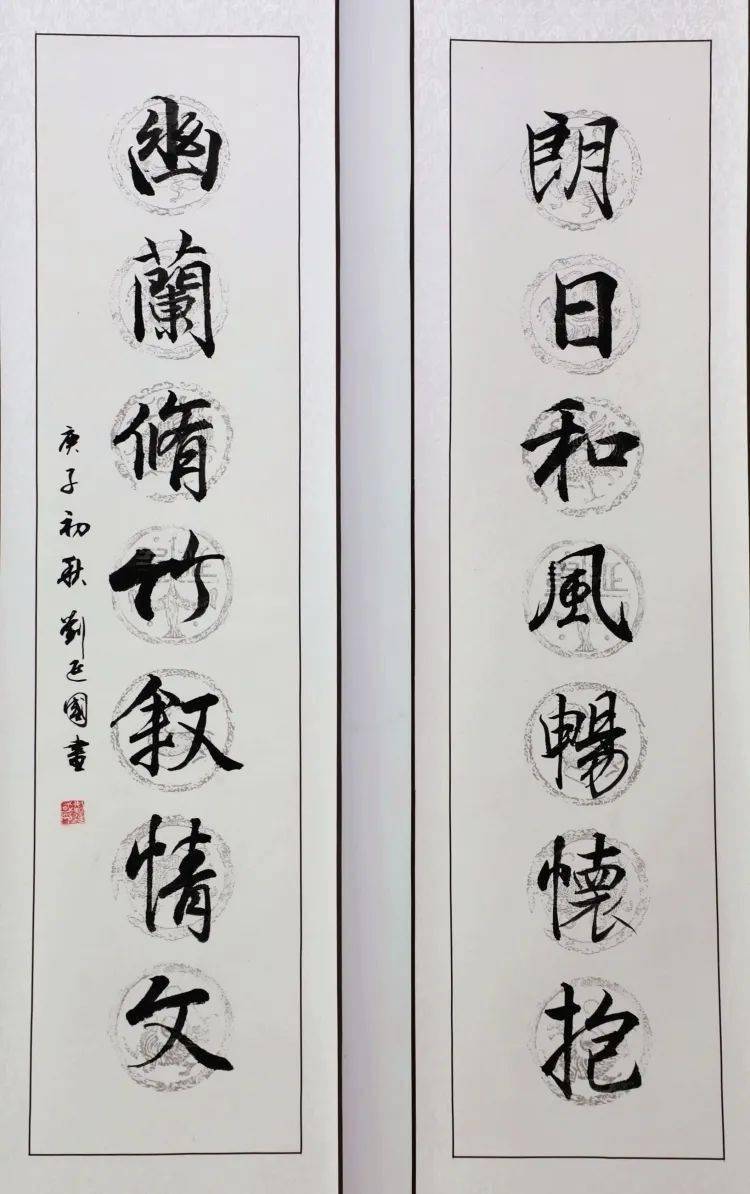 朗日和風暢懷抱
幽蘭脩竹敘情文
庚子初秋劉延國書